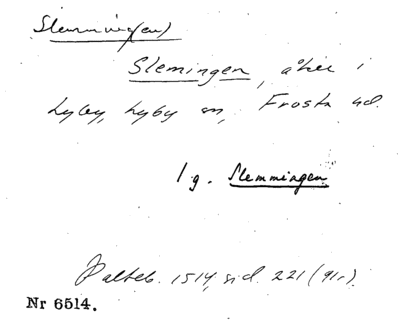 Slemming(en)
Slemingen, åker i
Lyby, Lyby sn, Frosta hd.
1 g. Slemmingen
Palteb. 1514, sid. 221 (91r).
Nr 6514.